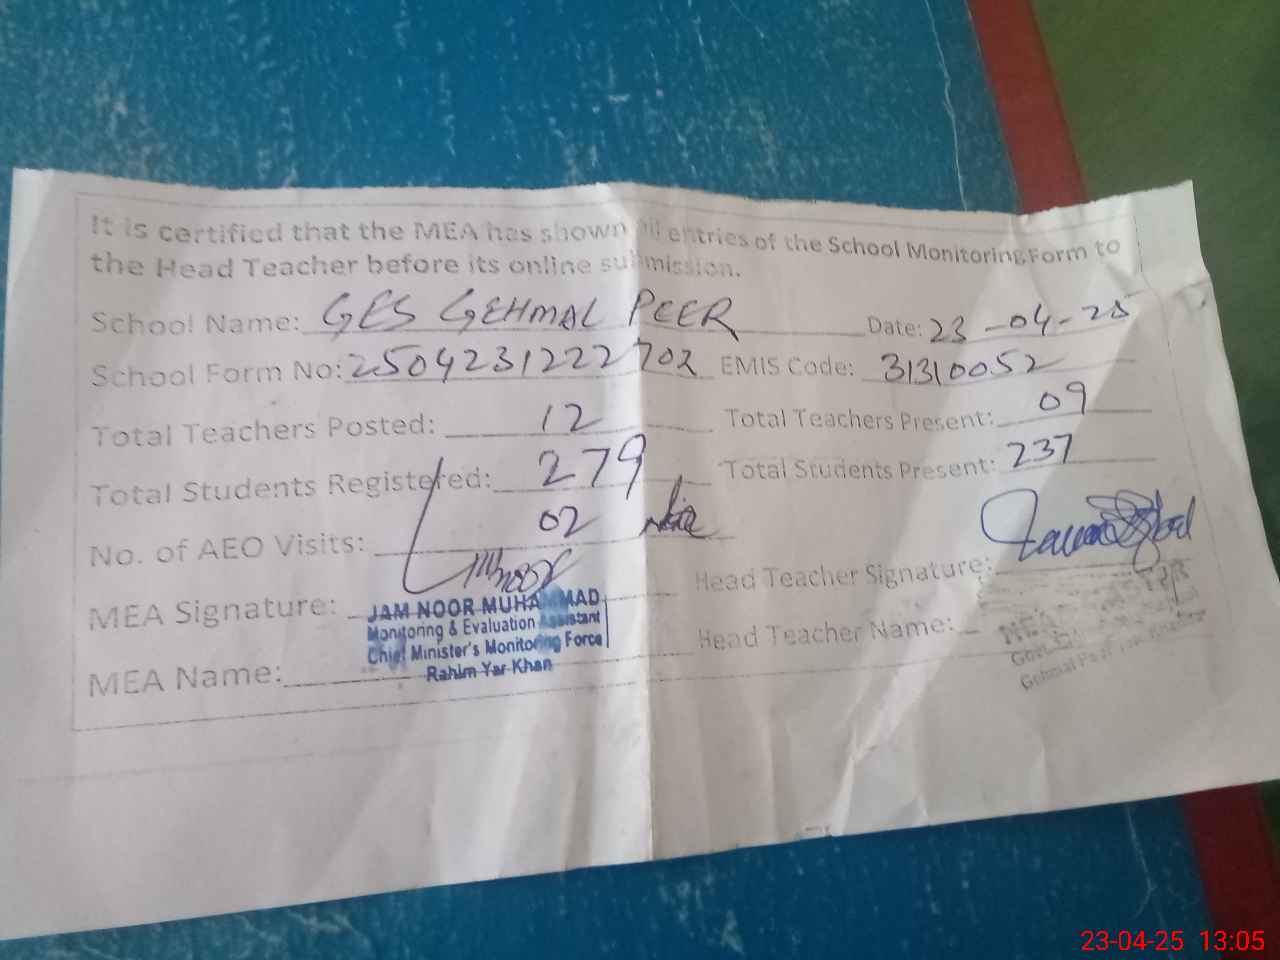 It is certified that the MEA has shown all entries of the School Monitoring Form to
the Head Teacher before its online submission.
School Name: GES GEHMAL PEER Date: 23-04-25
School Form No: 2504231222702 EMIS Code: 31310052
Total Teachers Posted: 12 Total Teachers Present: 09
Total Students Registered: 279 Total Students Present: 237
No. of AEO Visits: 02
MEA Signature: Head Teacher Signature:
JAM NOOR MUHAMMAD
Monitoring & Evaluation Assistant
Chief Minister's Monitoring Force
Rahim Yar Khan
MEA Name: Head Teacher Name:
23-04-25 13:05